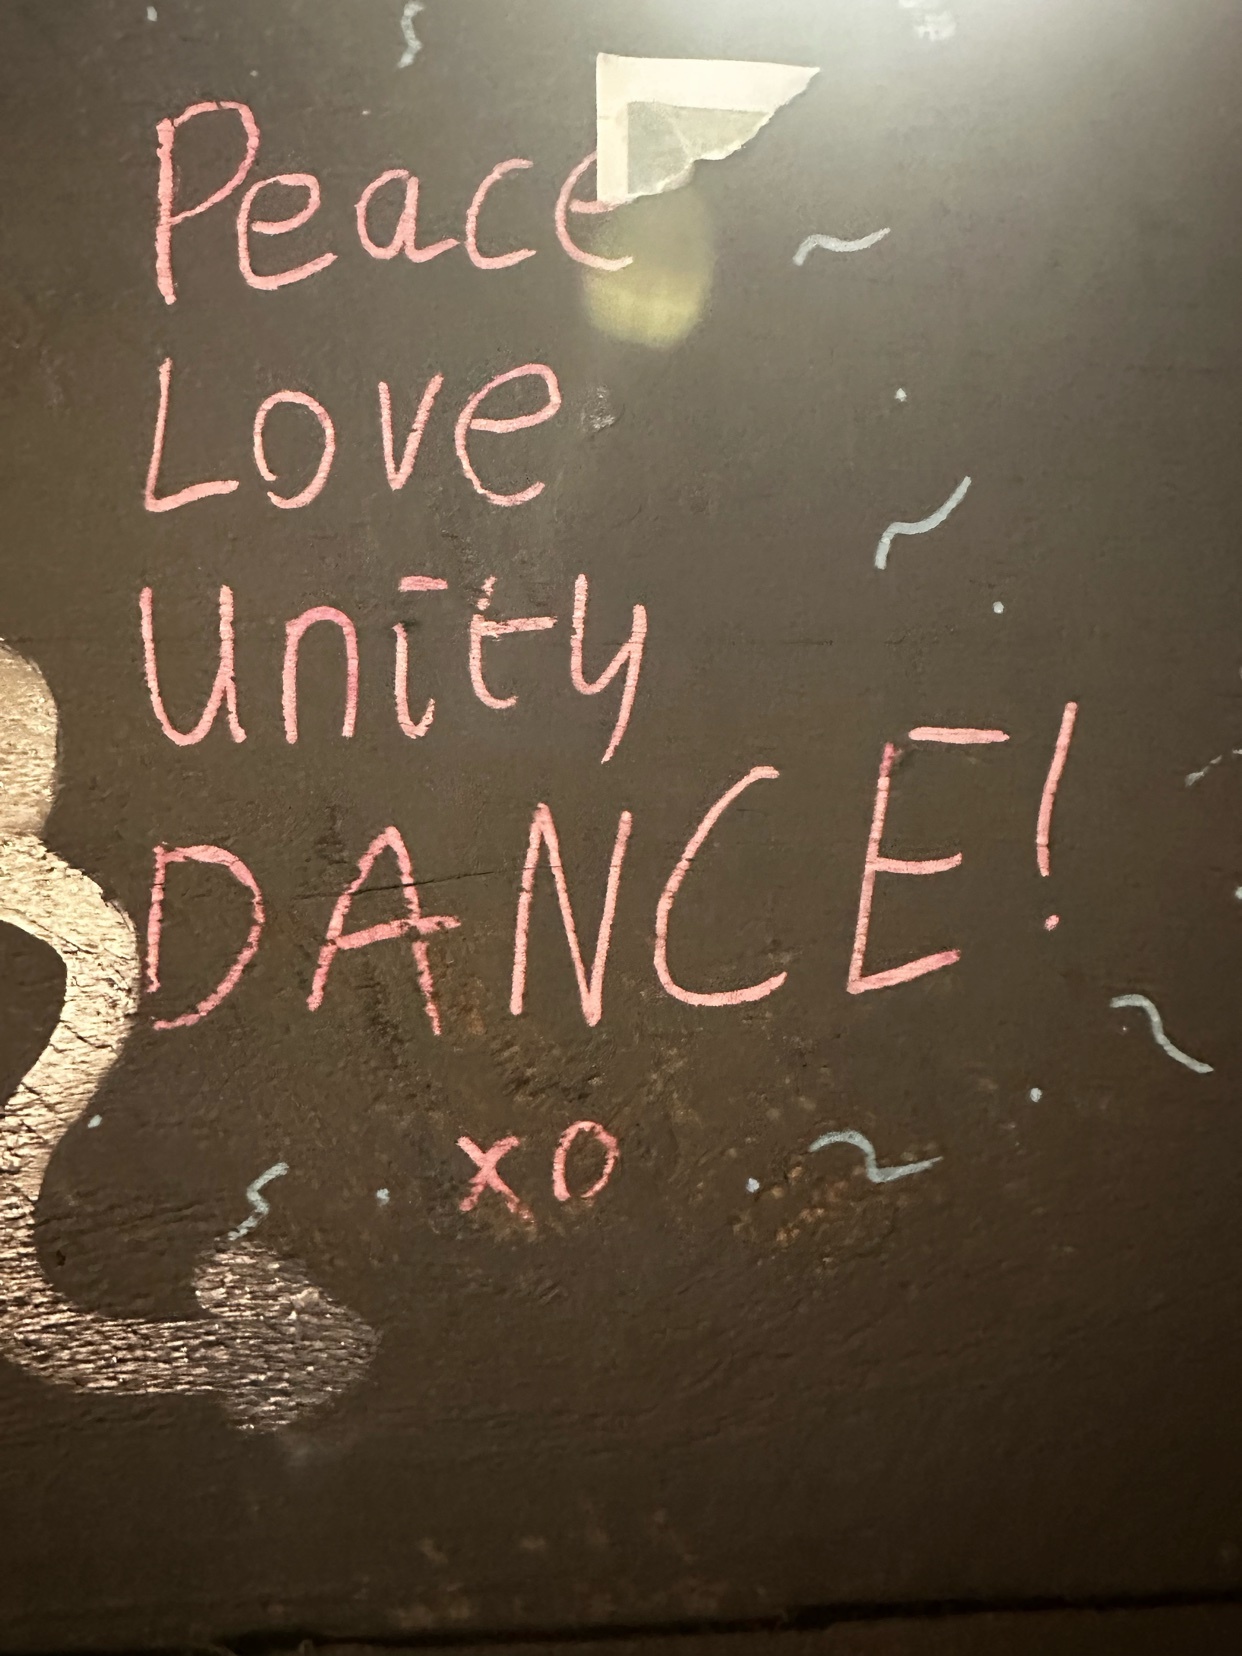 Peace
Love
Unity
DANCE!
xo